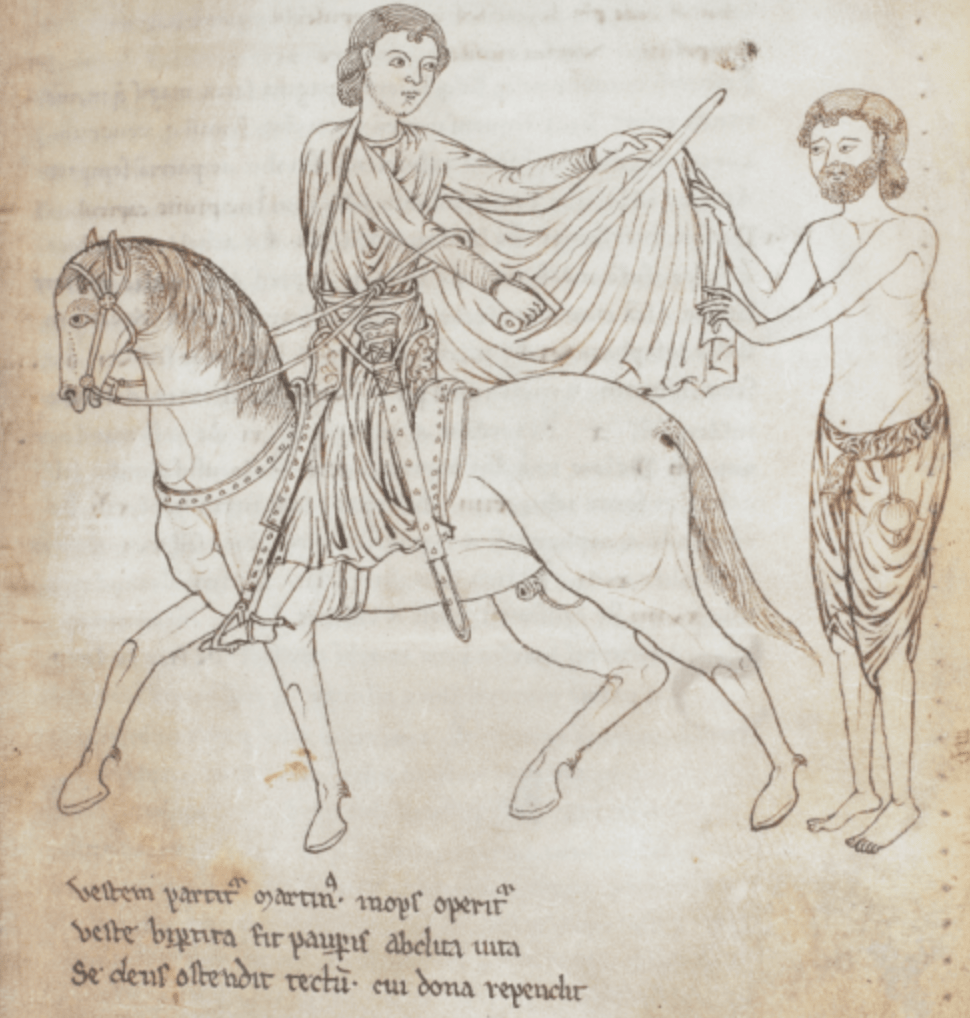 vestem partit᷑ Martinꝰ· inops operit᷑
veste biꝑtita fit pauꝑis abdita uita
Se deus ostendit tectū· cui dona rependit